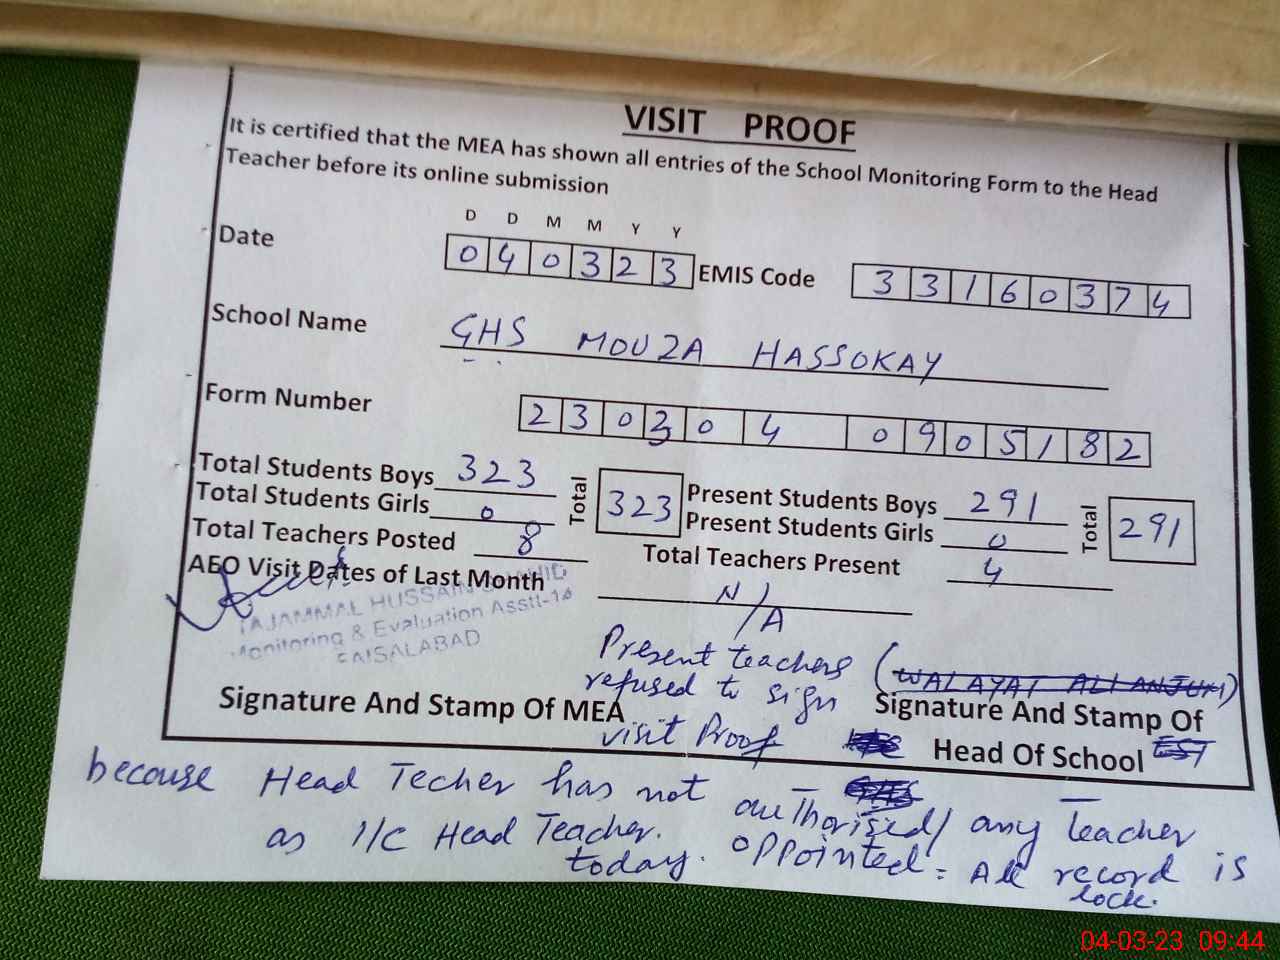 VISIT PROOF
It is certified that the MEA has shown all entries of the School Monitoring Form to the Head
Teacher before its online submission
D D M M Y Y
Date 0 4 0 3 2 3 EMIS Code 3 3 1 6 0 3 7 4
School Name GHS MOUZA HASSOKAY
Form Number 2 3 0 3 0 4 0 9 0 5 1 8 2
Total Students Boys 323 Total 323 Present Students Boys 291 Total 291
Total Students Girls 0 Present Students Girls 0
Total Teachers Posted 8 Total Teachers Present 4
AEO Visit Dates of Last Month N/A
TAJAMMAL HUSSAIN
Monitoring & Evaluation Asstt-14
FAISALABAD
Present teachers (WALAYAT ALI ANJUM)
refused to sign
Signature And Stamp Of MEA Signature And Stamp Of
visit Proof Head Of School
because Head Techer has not authorised/ any Teacher
as I/C Head Teacher. appointed = All record is
today. lock.
04-03-23 09:44